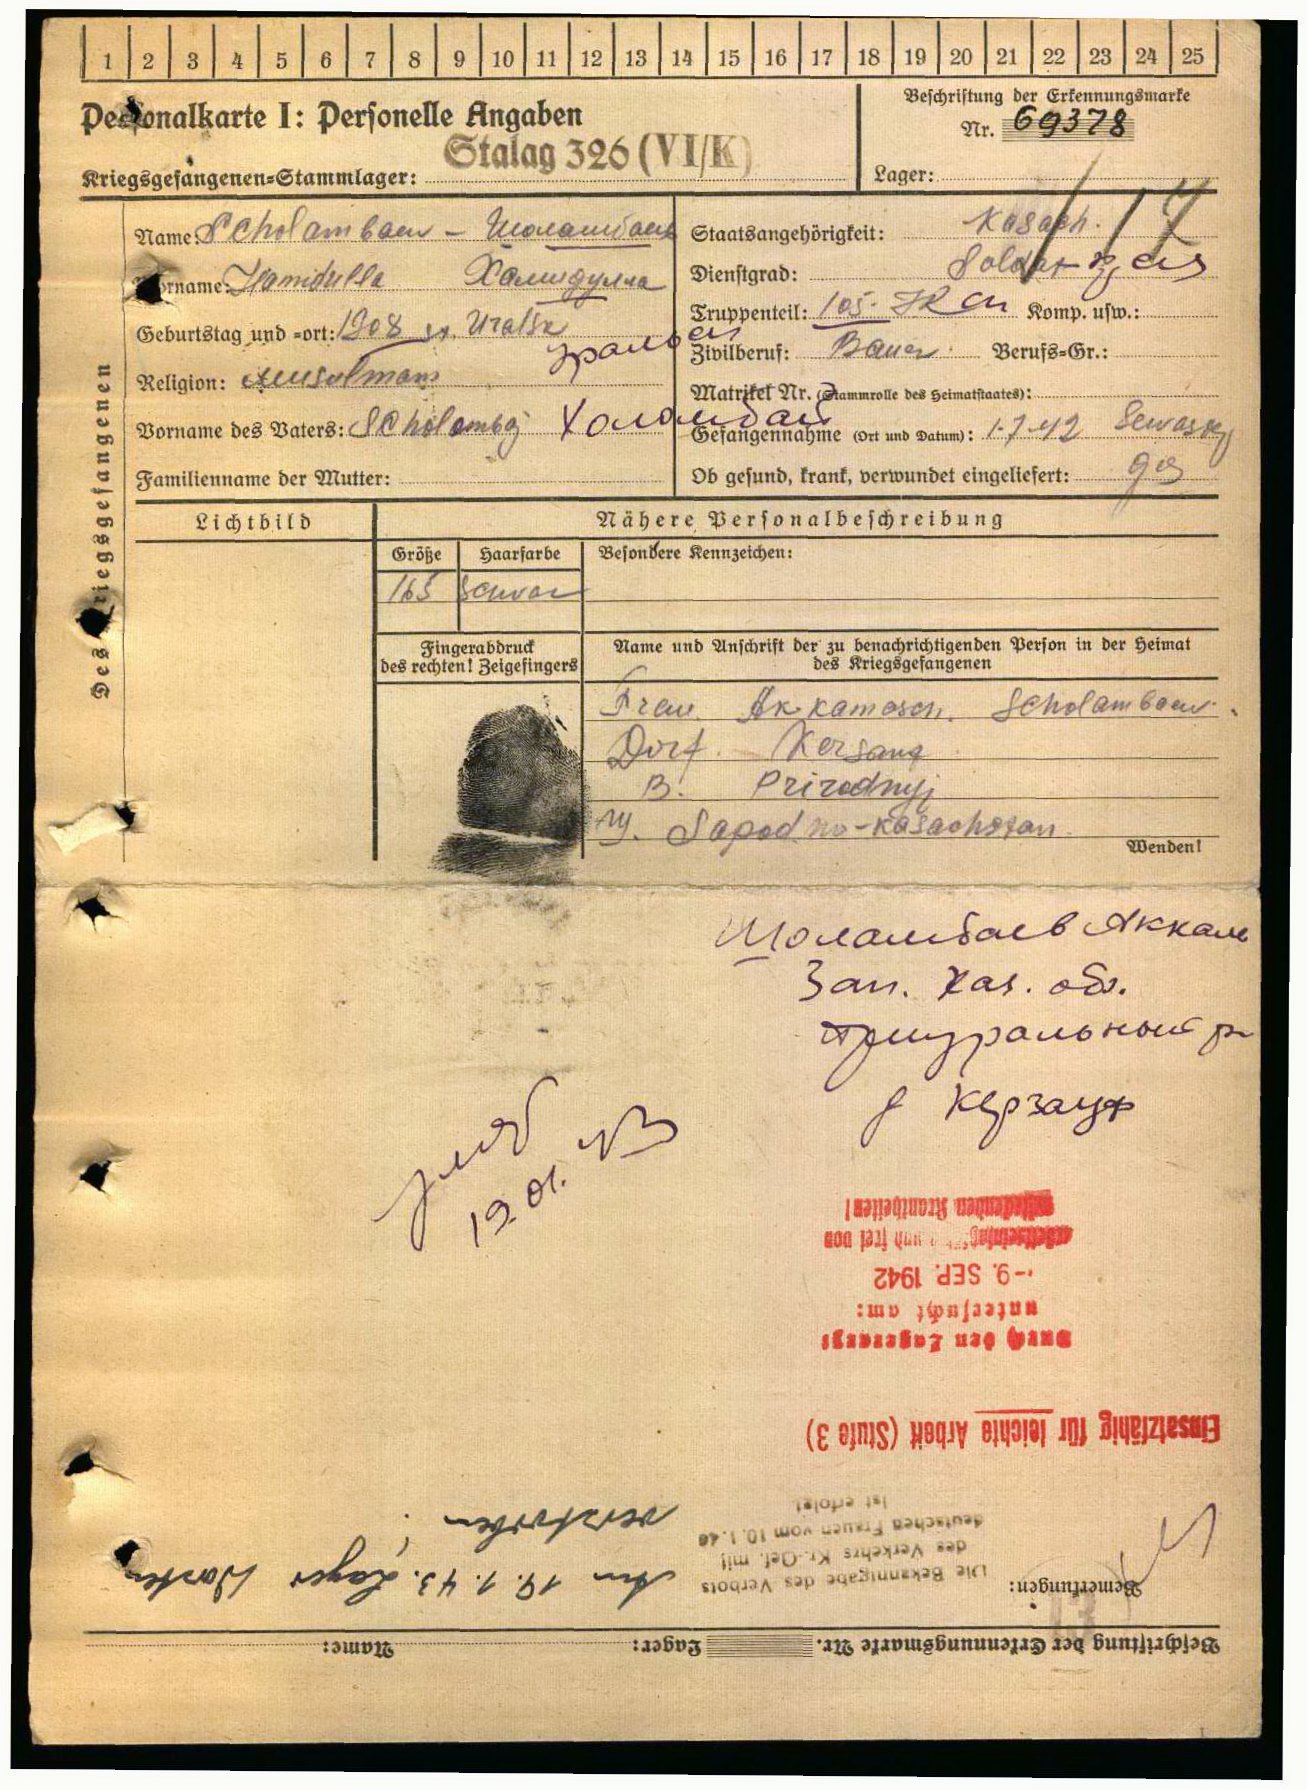 1 2 3 4 5 6 7 8 9 10 11 12 13 14 15 16 17 18 19 20 21 22 23 24 25
Personalkarte I: Personelle Angaben
Beschriftung der Erkennungsmarke
Nr. 69378
Stalag 326 (VI/K)
Kriegsgefangenen=Stammlager:
Lager:
Des Kriegsgefangenen
Name: Scholambaew - Шоламбаев
Vorname: Hamidulla Хамидулла
Geburtstag und =ort: 1908 Uralsk
Religion: Muselmann
Vorname des Vaters: Scholambaj Холамбай
Familienname der Mutter:
Staatsangehörigkeit: Kasach.
Dienstgrad: Soldat
Truppenteil: 105. Komp. usw.:
Zivilberuf: Bauer Berufs=Gr.:
Matrikel Nr. (Stammrolle des Heimatstaates):
Gefangennahme (Ort und Datum): 1.7.42
Ob gesund, krank, verwundet eingeliefert: ges
Lichtbild
Nähere Personalbeschreibung
Größe Haarfarbe Besondere Kennzeichen:
165 schwar
Fingerabdruck
des rechten! Zeigefingers
Name und Anschrift der zu benachrichtigenden Person in der Heimat
des Kriegsgefangenen
Frau Akkamosch Scholambaew
Dorf Kersauf
B. Prirodnyj
Sapadno-Kasachstan
Wenden!
Шоламбаев Аккам
Зап. Каз. обл.
Приуральный р
д Керзауф
умер
19.01.43
Durch den Lagerarzt
untersucht am:
-9. SEP. 1942
und frei von
ansteckenden Krankheiten!
Einsatzfähig für leichte Arbeit (Stufe 3)
Bemerkungen:
Die Bekanntgabe des Verbots
des Verkehrs Kr.-Gef. mit
deutschen Frauen vom 10.1.40
ist erfolgt.
Am 19.1.43. Lager Dorsten
verstorben
13
Beschriftung der Erkennungsmarke Nr. Lager: Name: